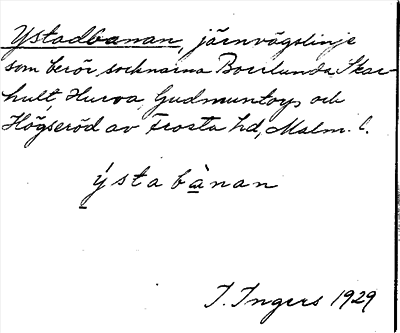 Ystadbanan, järnvägslinje
som berör socknarna Borrlunda, Skar-
hult, Hurva, Gudmuntorp och
Högseröd av Frosta hd, Malm. l.
ýsta bà̱nan
I. Ingers 1929